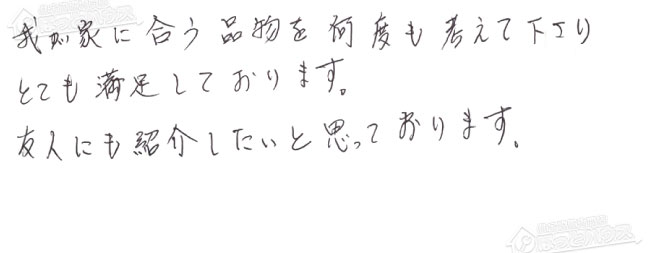 我が家に合う品物を何度も考えて下さり
とても満足しております。
友人にも紹介したいと思っております。